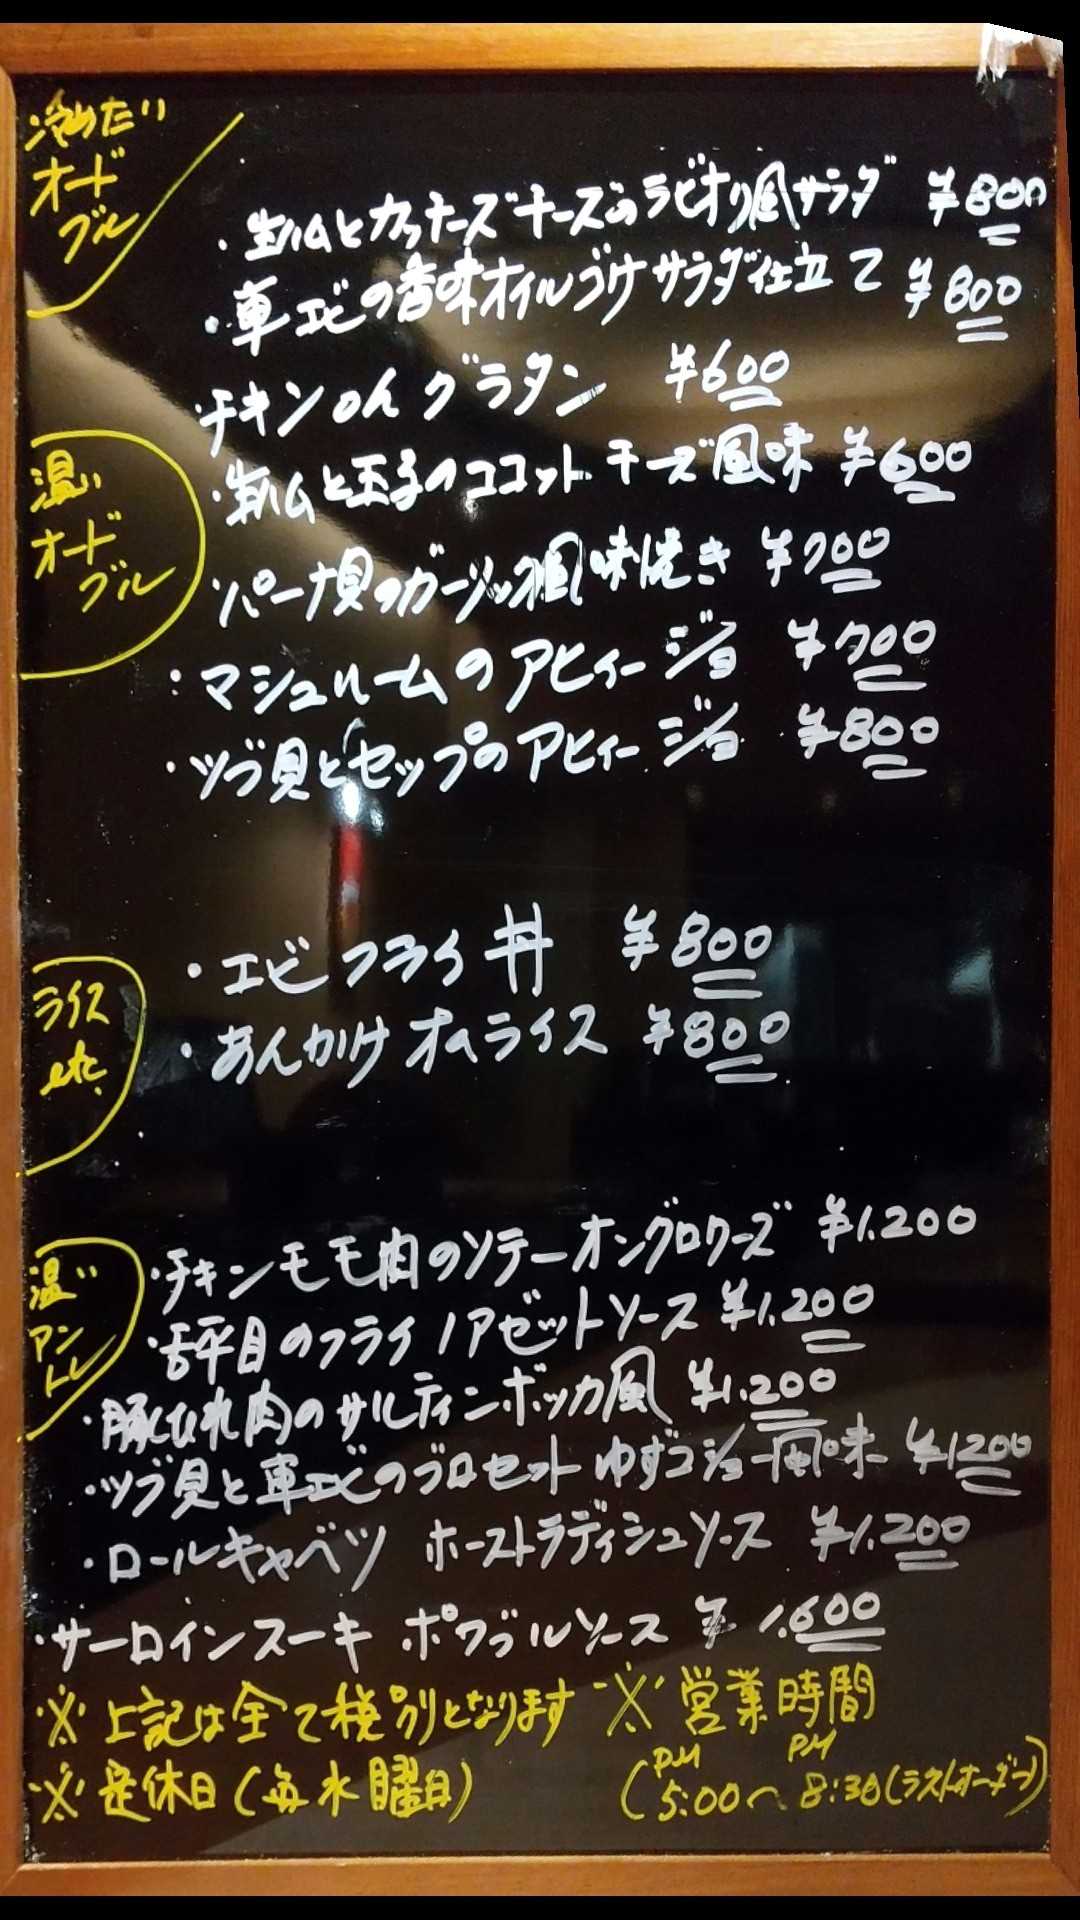 冷めたい
オード
ブル
・生ハムとカッテーズチーズのラビオリ風サラダ ¥800
・車エビの香味オイルづけサラダ仕立て ¥800
・チキンのグラタン ¥600
温い
オード
ブル
・生ハムと玉子のココット チーズ風味 ¥600
・パーナ貝のガーリック風味焼き ¥700
・マシュルームのアヒィージョ ¥700
・ツブ貝とセップのアヒィージョ ¥800
ライス
etc.
・エビフライ丼 ¥800
・あんかけオムライス ¥800
温い
アン
トレ
・チキンモモ肉のソテーオングロワーズ ¥1.200
・舌平目のフライ ノアゼットソース ¥1.200
・豚ひれ肉のサルティンボッカ風 ¥1.200
・ツブ貝と車エビのブロセット ゆずコジョー風味 ¥1200
・ロールキャベツ ホーストラディシュソース ¥1.200
・サーロインスーキ ポワブルソース ¥1.600
※上記は全て税別となります ※営業時間
※定休日(毎水曜日) (PM5:00〜PM8:30(ラストオーダー))